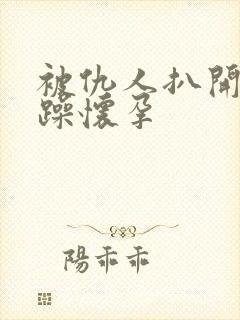 被仇人扒開
躁懷孕
陽乖乖